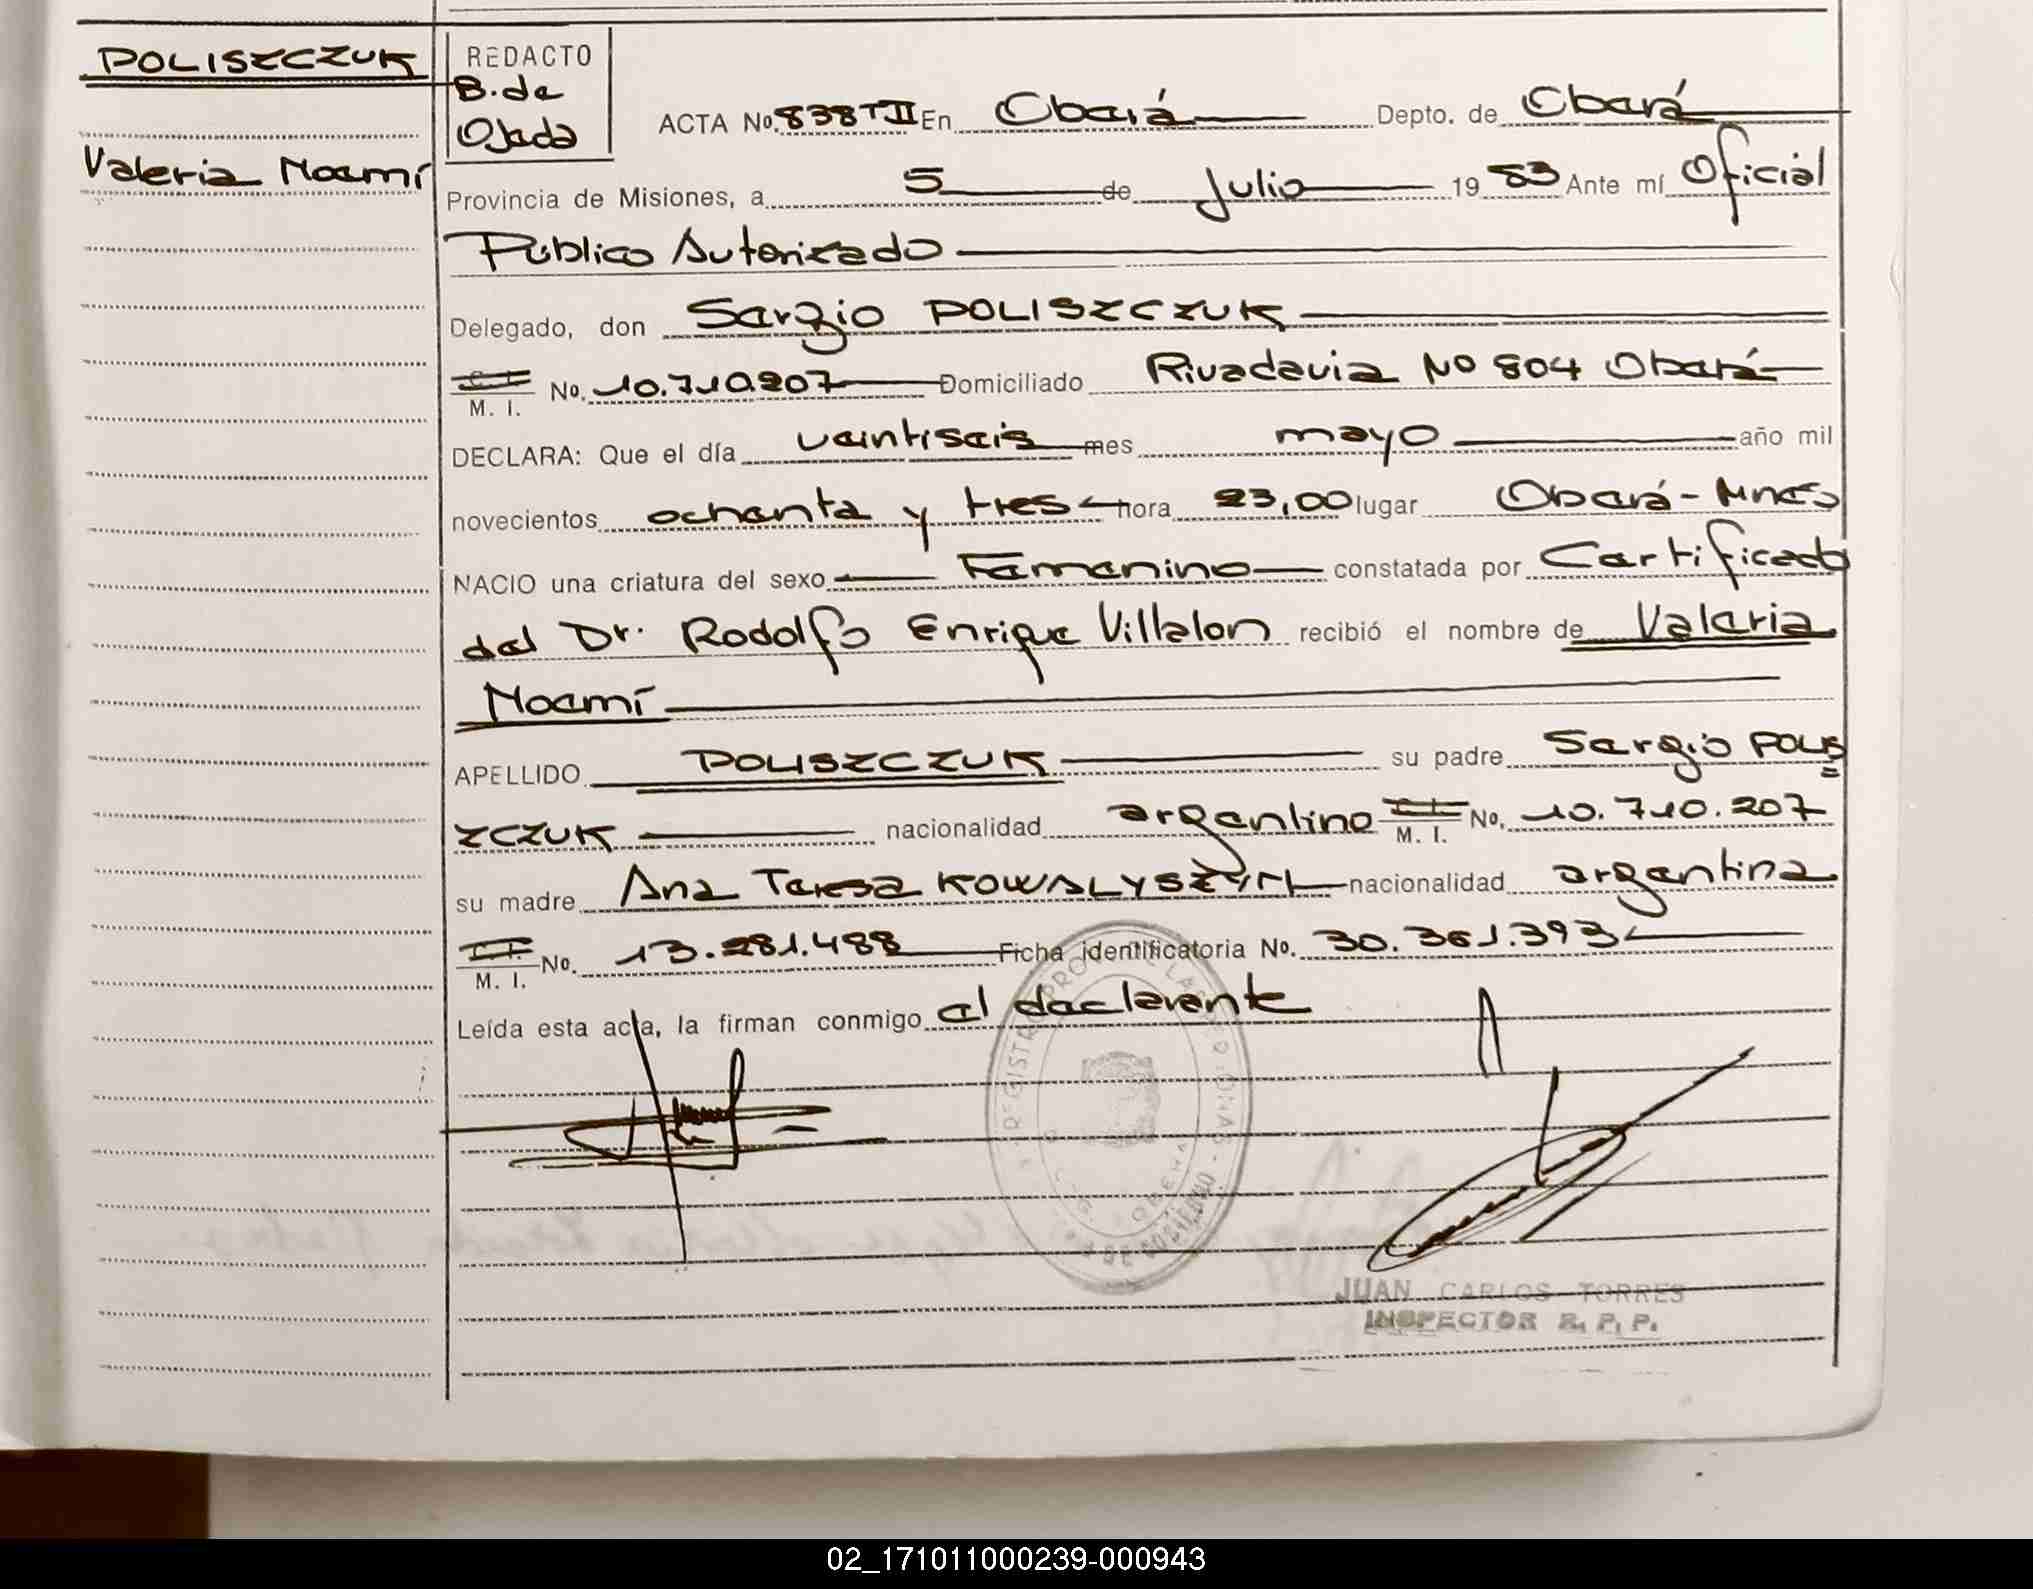 POLISZCZUK
Valeria Noemí
REDACTO
B. de
Ojeda
ACTA No. 838 T II En Oberá Depto. de Oberá
Provincia de Misiones, a 5 de Julio 19 83 Ante mí Oficial
Público Autorizado
Delegado, don Sergio POLISZCZUK
C. I.
M. I. No. 10.710.207 Domiciliado Rivadavia No 804 Oberá
DECLARA: Que el día veintiseis mes mayo año mil
novecientos ochenta y tres hora 23,00 lugar Oberá - Mnes
NACIO una criatura del sexo Femenino constatada por Certificado
del Dr. Rodolfo Enrique Villalon recibió el nombre de Valeria
Noemí
APELLIDO POLISZCZUK su padre Sergio POLIS=
ZCZUK nacionalidad argentino C. I. M. I. No. 10.710.207
su madre Ana Teresa nacionalidad argentina
C. I.
M. I. No. 13.281.488 Ficha identificatoria No. 30.361.393
Leída esta acta, la firman conmigo el declarante
JUAN CARLOS TORRES
INSPECTOR R. P. P.
02_171011000239-000943